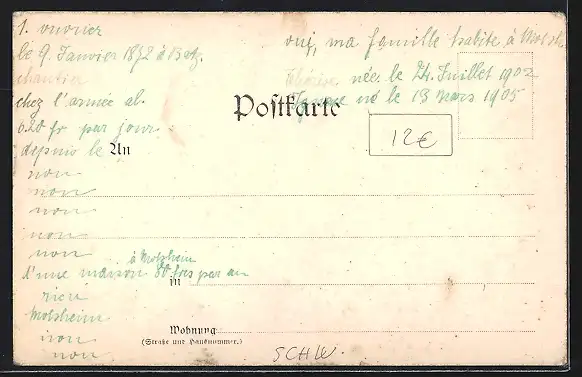 1. ouvrier
le 9 Janvier 1872 à Barg.
chantier
chez l'armée al.
0.20 fr par jour
depuis le
non
non
non
non
non
d'une maison 80 frcs par an
à Molsheim
rien
Molsheim
non
non
oui, ma famille habite à Molsh.
Thérèse née le 24 Juillet 1902
Ignace né le 13 Mars 1905
Postkarte
12€
An
in
Wohnung
(Straße und Hausnummer.)
SCHW.